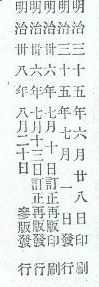 明治三十五年六月廿八日印刷
明治三十五年七月一日發行
明治卅六年七月十三日訂正再版印刷
明治卅六年七月十三日訂正再版發行
明治卅八年八月二十日參版發行